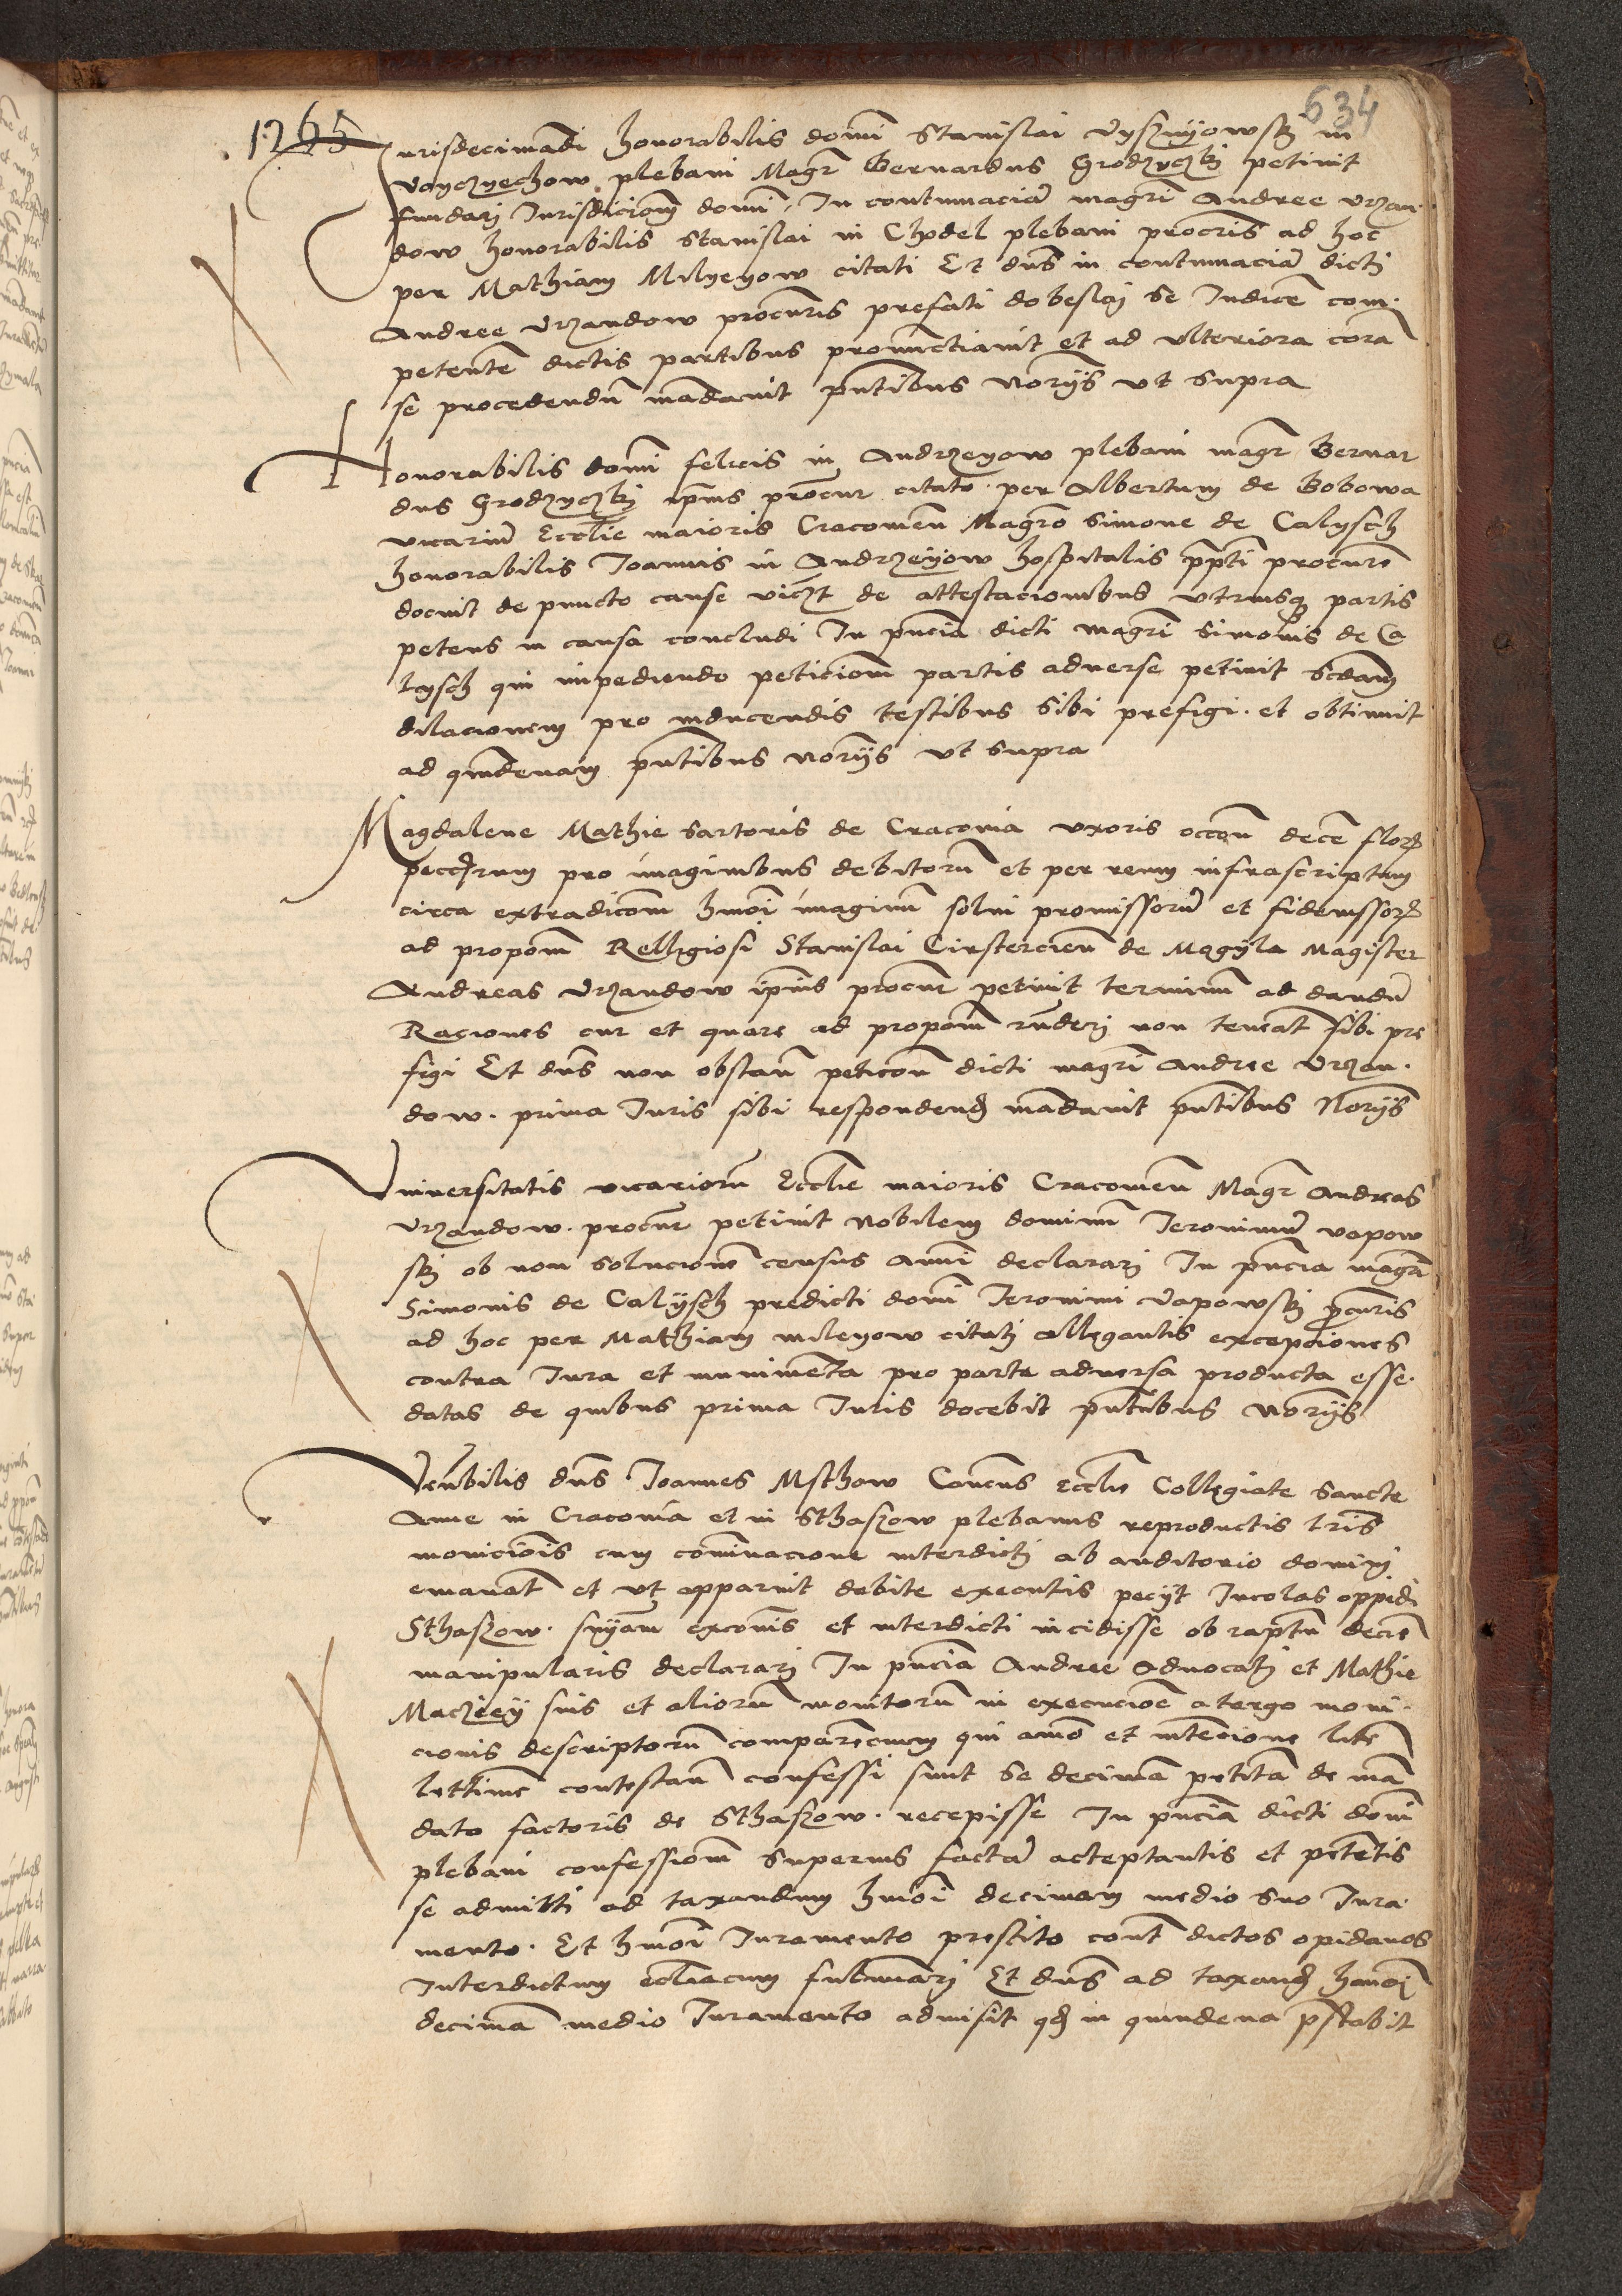 634
1265
Jurisdecimadi honorabilis domi Stanislai Vysznyowsky in
Voyczyechow plebani Magr Bernardus Grodzyczky petivit
fundari Jurisdiciom domi. In contumacia magri Andree Vrzan
dow honorabilis Stanislai in Chodel plebani procris ad hoc
per Mathiam Milyeyow citati Et dns in contumacia dicti
Andree Vrzandow procuris prefati dobeslai se Judice com
petente dictis partibus pronunctiavit et ad vlteriora cora
se procedendu madavit pntibus noriis vt supra
Honorabilis domi felicis in Andrzeyow plebani magr Bernar
dus Grodzyczky ipius procur citato per Albertum de Bobowa
vicariu Ecclie maioris Cracovien Magro Simone de Calysch
honorabilis Joannis in Andrzeyow hospitalis ppti procure
docuit de puncto cause viczt de attestacionibus vtriusq partis
petens in causa concludi In pncia dicti magri Simonis de Ca
lysch qui impediendo peticiom partis adverse petivit scdam
dilacionem pro inducendis testibus sibi prefigi et obtinuit
ad quidenam pntibus noriis vt supra
Magdalene Mathie sartoris de Cracovia vxoris occon dece flor
pro imaginibus debitoru et per reum infrascriptum
circa extradicom hmoi imaginu solvi promissoru et fideiussor
ad propom Relligiosi Stanislai Cistercien de Mogyla Magister
Andreas Vrzandow ipius procur petivit terminu ad dandu
Raciones cur et quare ad propom rnderi non teneat sibi pre
figi Et dns non obstan peticon dicti magri Andree Vrzan
dow. prima Juris sibi respondend madavit pntibus Noriis
Vniversitatis vicarioru Ecclie maioris Cracovien Magr Andreas
Vrzandow. procur petivit Nobilem dominu Jeronimu vapow
sky ob non solucione census Anni declarari In pncia magri
Simonis de Calysch predicti domi Jeronimi Vapowsky pcuris
ad hoc per Mathiam mileyow citati allegantis excepciones
contra Jura et munimeta pro parte adversa producta esse
datas de quibus prima Juris docebit pntibus noriis
Venbilis dns Joannes Msthow Canicus ecclie Collegiate sancte
Anne in Cracovia et in Sthaszow plebanus reproductis lris
monicionis cum cominacione interdicti ab auditorio domini
emanat et vt apparuit debite executis peciit Incolas oppidi
Sthaszow. sniam excois et interdicti incidisse ob raptu decie
manipularis declarari In pncia Andree Advocati et Mathie
Macziey suis et alioru monitoru in execucioe a tergo moni
cionis descriptoru comparecium qui aino et intecione lite
lettime contestan confessi sunt se decima petita de ma
dato factoris de Sthaszow. recepisse In pncia dicti domi
plebani confessiom superius facta acceptantis et petetis
se admitti ad taxandum hmoi decimam medio suo Jura
mento. Et hmoi Juramento prestito cont dictos opidanos
Interdictum ecclesiacum fulminari Et dns ad taxand hmoi
decima medio Juramento admisit qd in quindena pstabit